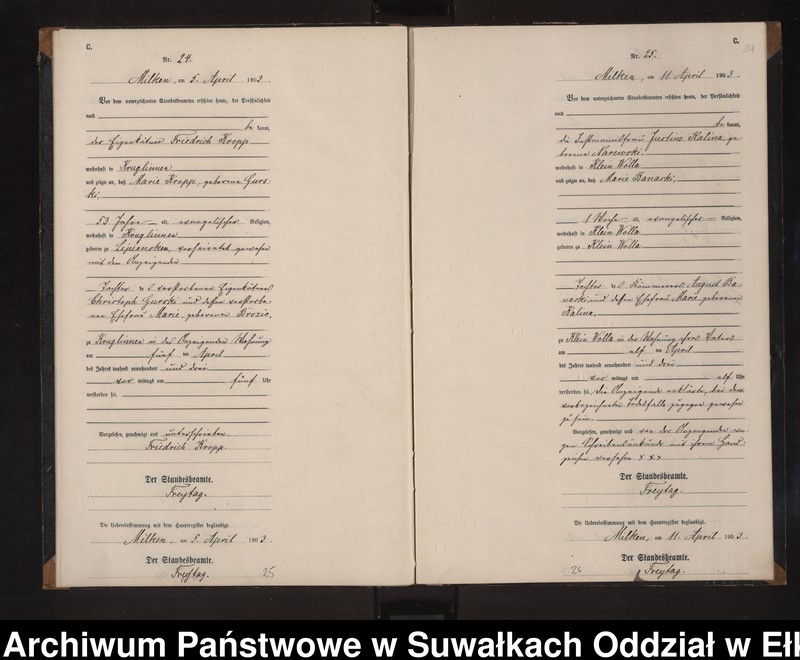 C.
Nr. 24.
Milken, am 5. April 1903.
Vor dem unterzeichneten Standesbeamten erschien heute, der Persönlichkeit
nach
be kannt,
der Eigenkätner Friedrich Kropp
wohnhaft in Kruglinnen
und zeigte an, daß Marie Kropp, geborene Gurs-
ki,
53 Jahre — a. evangelischer Religion,
wohnhaft in Kruglinnen
geboren zu Lipiensken, verheiratet gewesen
mit dem Anzeigenden
Tochter des verstorbenen Eigenkätners
Christoph Gurski und dessen verstorbe-
nen Ehefrau Marie, geborenen Brozio,
zu Kruglinnen in des Anzeigenden Wohnung
am fünf ten April
des Jahres tausend neunhundert und drei
vor mittags um fünf Uhr
verstorben sei.
Vorgelesen, genehmigt und unterschrieben
Friedrich Kropp.
Der Standesbeamte.
Freytag.
Die Uebereinstimmung mit dem Hauptregister beglaubigt.
Milken, am 5. April 1903.
Der Standesbeamte.
Freytag.
25
C.
Nr. 25.
Milken, am 11. April 1903.
Vor dem unterzeichneten Standesbeamten erschien heute, der Persönlichkeit
nach
be kannt,
die Instmannsfrau Justine Kalina, ge-
borene Narewski.
wohnhaft in Klein Wolla
und zeigte an, daß Marie Banaski,
1 Woche — a. evangelischer — Religion,
wohnhaft in Klein Wolla
geboren zu Klein Wolla
Tochter des Kämmerers August Ba-
naski und dessen Ehefrau Marie, geborenen
Kalina,
zu Klein Wolla in der Wohnung ihres Vaters
am elf ten April
des Jahres tausend neunhundert und drei
vor mittags um elf Uhr
verstorben sei. Die Anzeigende erklärte, bei dem
vorbezeichneten Todesfalle zugegen gewesen
zu sein.
Vorgelesen, genehmigt und von der Anzeigenden we-
gen Schreibensunkunde mit ihrem Hand-
zeichen versehen x x x
Der Standesbeamte.
Freytag.
Die Uebereinstimmung mit dem Hauptregister beglaubigt.
Milken, am 11. April 1903.
Der Standesbeamte.
Freytag.
26
Archiwum Państwowe w Suwałkach Oddział w Ełk